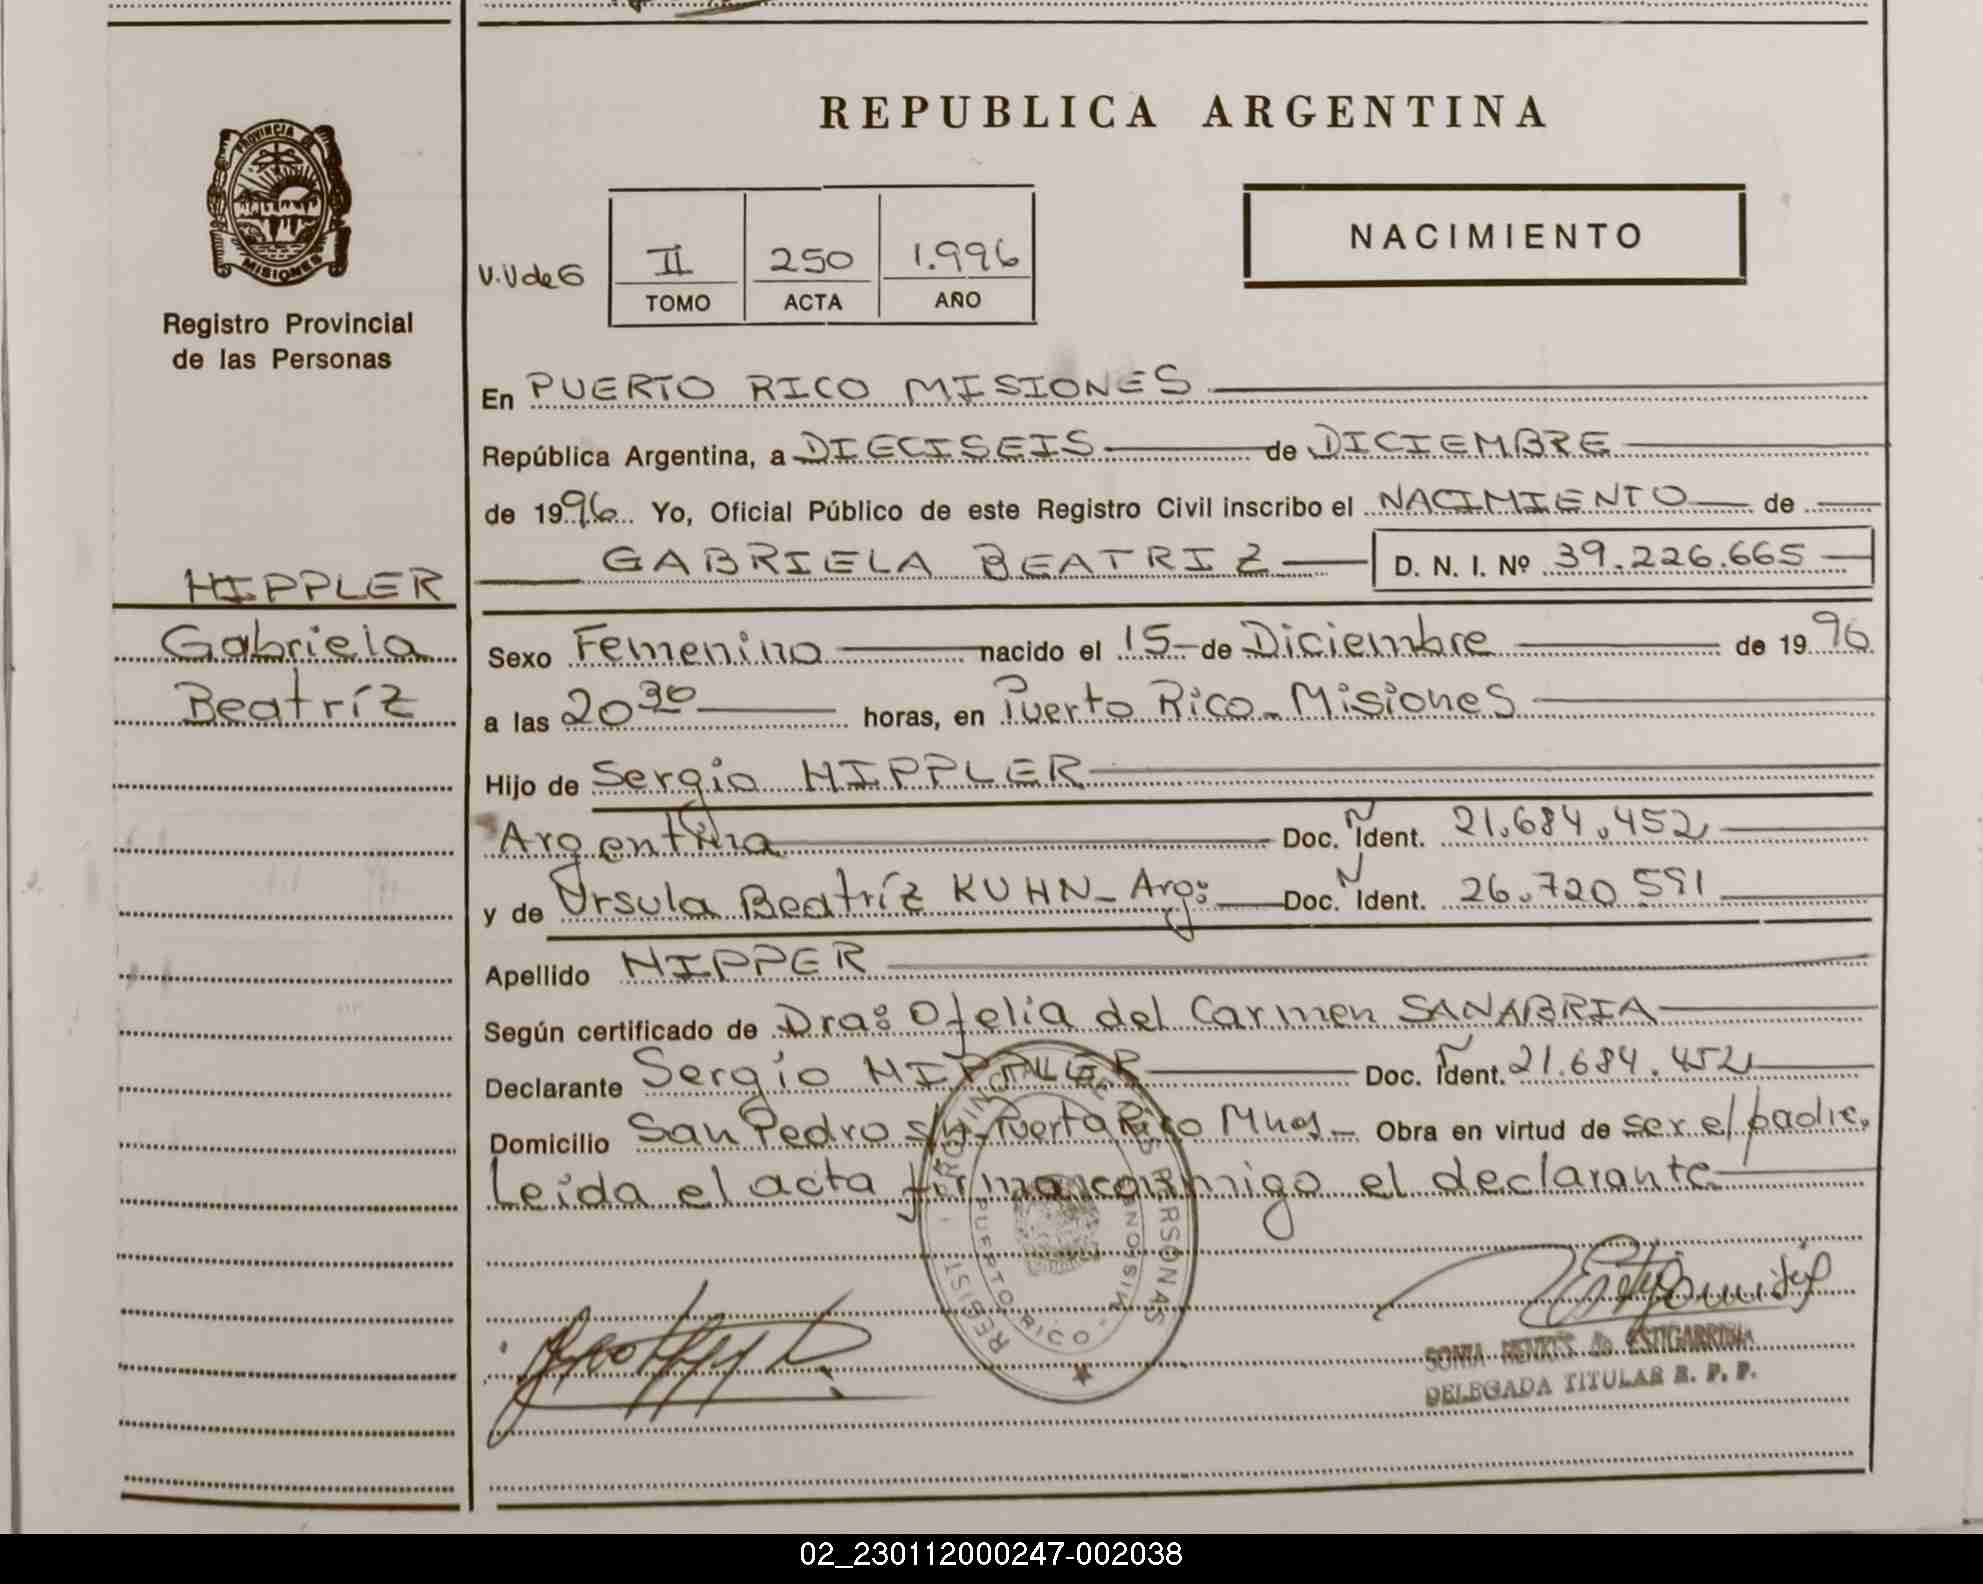 REPUBLICA ARGENTINA
PROVINCIA DE
MISIONES
Registro Provincial
de las Personas
V.V de G
II 250 1.996
TOMO ACTA AÑO
NACIMIENTO
En PUERTO RICO MISIONES
República Argentina, a DIECISEIS de DICIEMBRE
de 1996 Yo, Oficial Público de este Registro Civil inscribo el NACIMIENTO de
GABRIELA BEATRIZ D. N. I. Nº 39.226.665
HIPPLER
Gabriela
Beatríz
Sexo Femenino nacido el 15 de Diciembre de 1996
a las 20 30 horas, en Puerto Rico - Misiones
Hijo de Sergio HIPPLER
Argentina Doc. Ñ Ident. 21.684.452
y de Ursula Beatríz KUHN - Arg: Doc. N Ident. 26.720.591
Apellido HIPPER
Según certificado de Dra: Ofelia del Carmen SANABRIA
Declarante Sergio HIPPLER Doc. Ñ Ident. 21.684.452
Domicilio San Pedro s/n - Puerto Rico Mnes - Obra en virtud de ser el padre.
Leída el acta firma conmigo el declarante
REGIST PROVINCIAL DE LAS PERSONAS
PUERTO RICO - MISIONES
SONIA de ESTIGARRIBIA
DELEGADA TITULAR R. P. P.
02_230112000247-002038